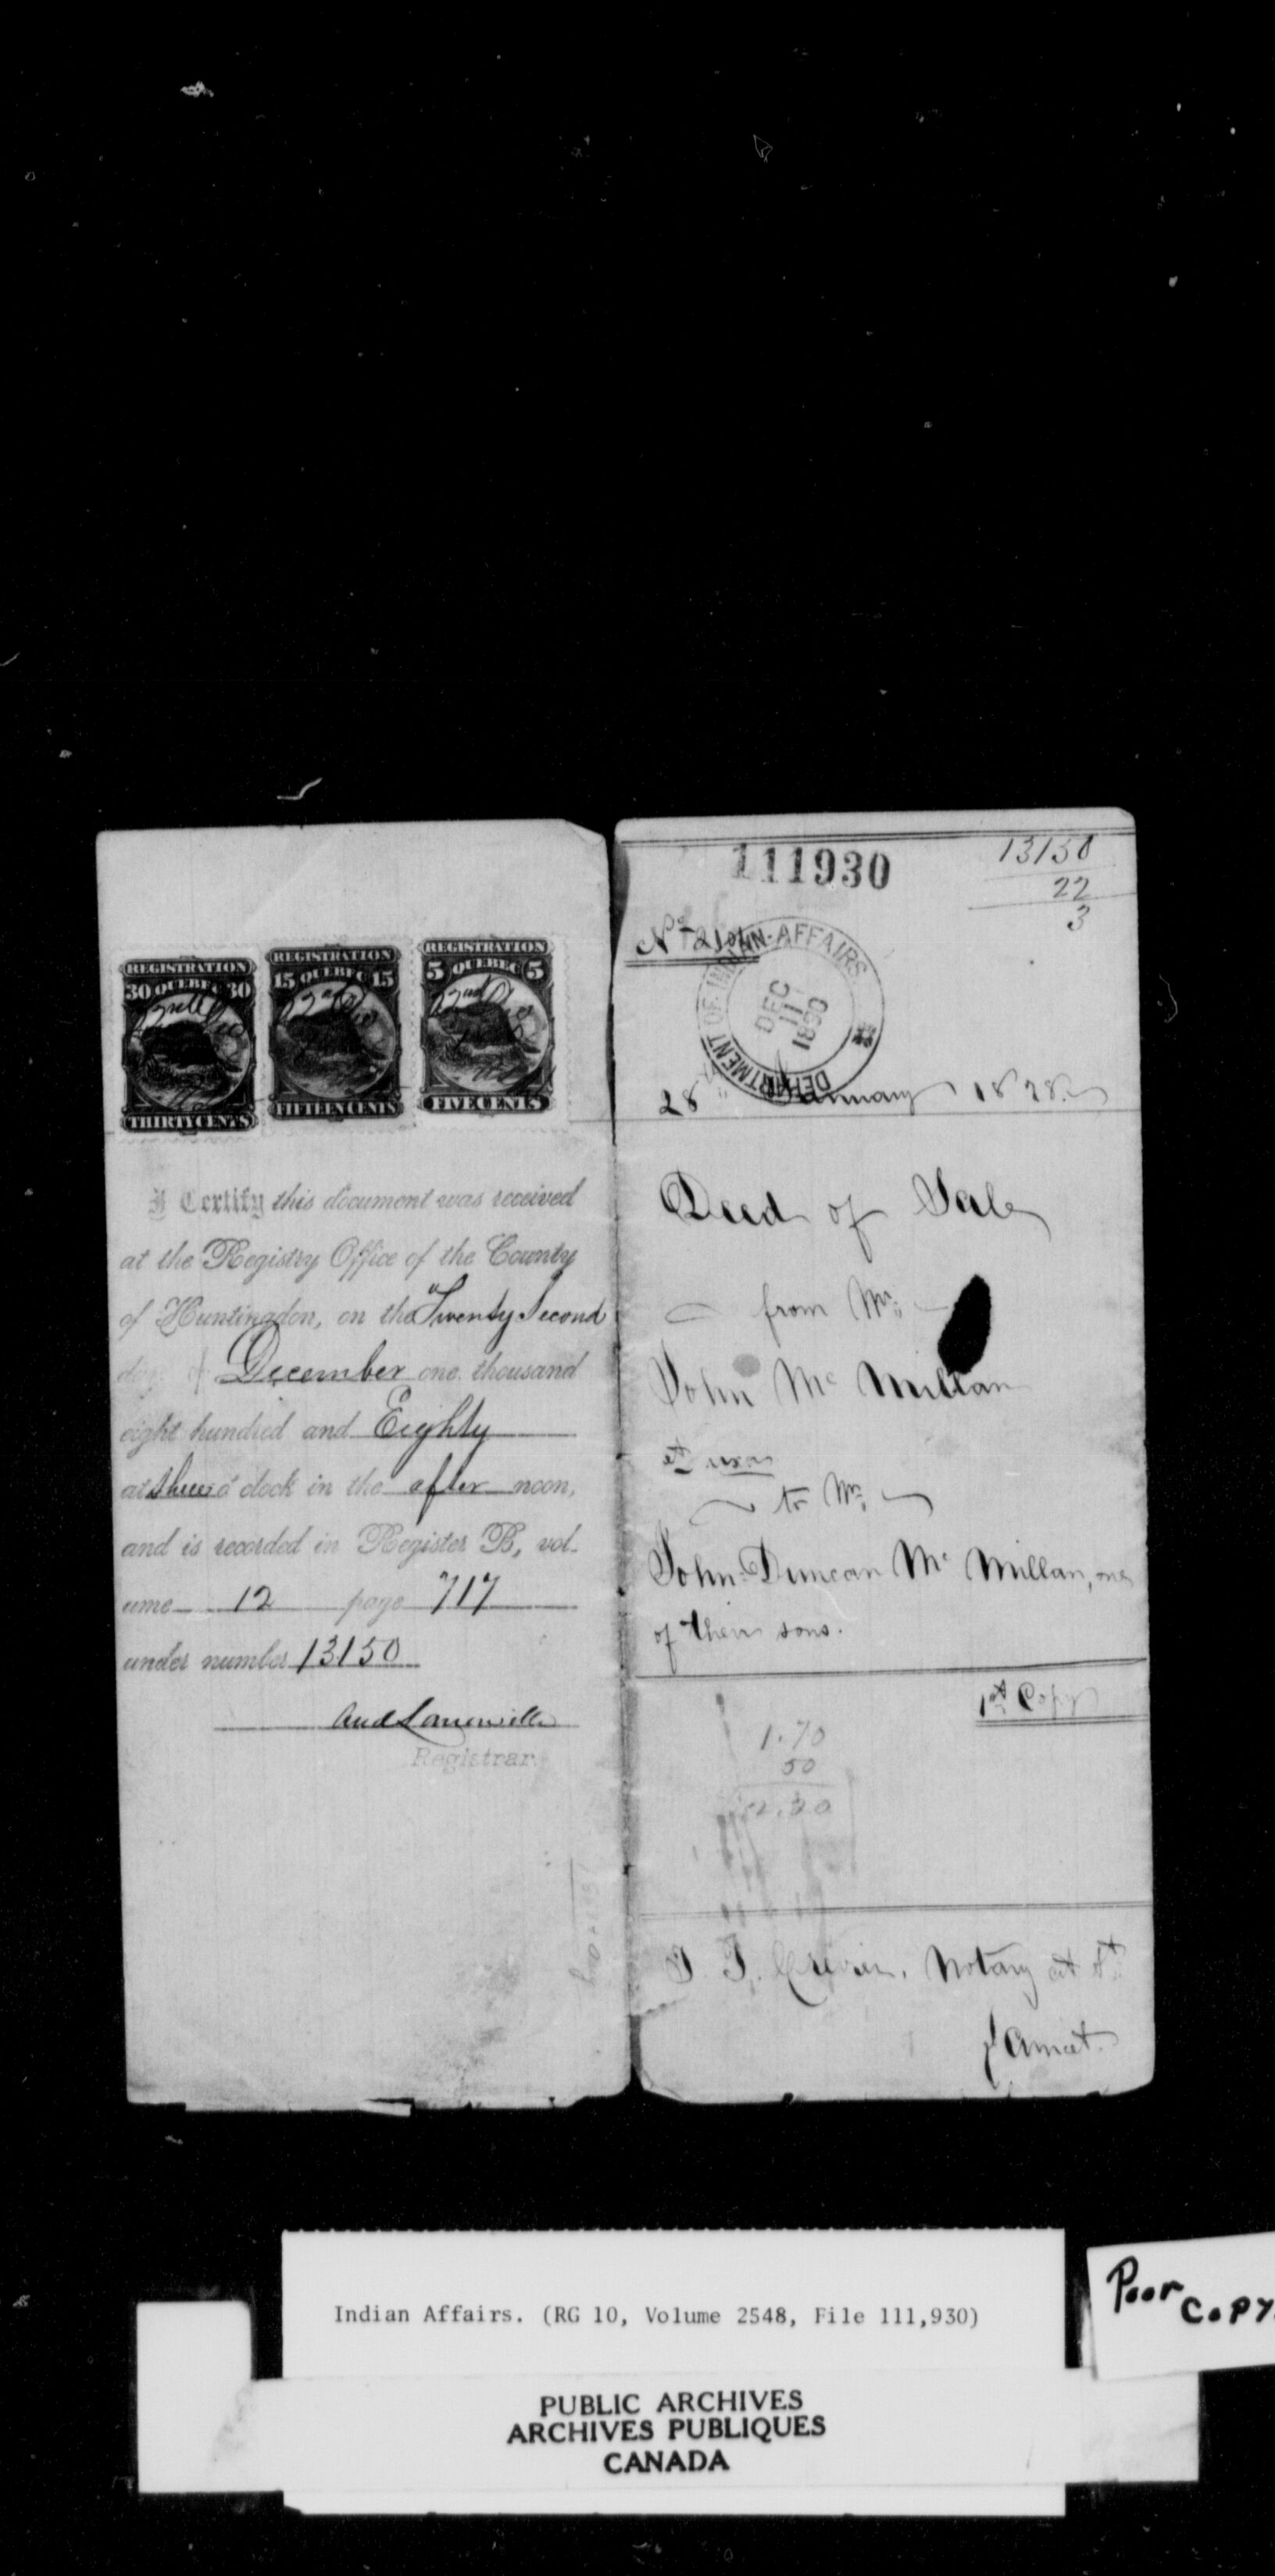 REGISTRATION
30 QUEBEC 30
THIRTY CENTS
REGISTRATION
15 QUEBEC 15
FIFTEEN CENTS
REGISTRATION
5 QUEBEC 5
FIVE CENTS
I Certify this document was received
at the Registry Office of the County
of Huntingdon, on the Twenty Second
day of December one thousand
eight hundred and Eighty
at three o'clock in the after noon,
and is recorded in Register B, vol-
ume 12 page 717
under number 13150
Registrar
111930
13150
22
3
No
DEPARTMENT OF INDIAN AFFAIRS
DEC
11
1890
28 January 1878
Deed of Sale
from Mr.
John Mc Millan
et uxor
to Mr.
John Duncan Mc Millan, one
of their sons.
1st Copy
1.70
50
2.20
Notary at St
Anicet.
Indian Affairs. (RG 10, Volume 2548, File 111,930)
Poor
COPY
PUBLIC ARCHIVES
ARCHIVES PUBLIQUES
CANADA